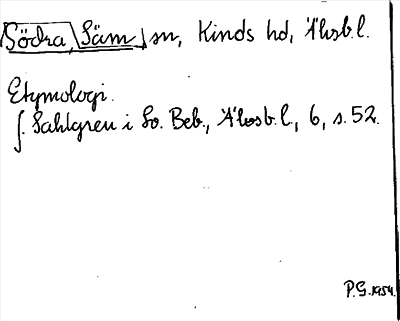 Södra Säm sn, Kinds hd, Älvsb.l.
Etymologi.
J. Sahlgren i So. Beb., Älvsb.l., 6, s. 52.
P.G. 1954.